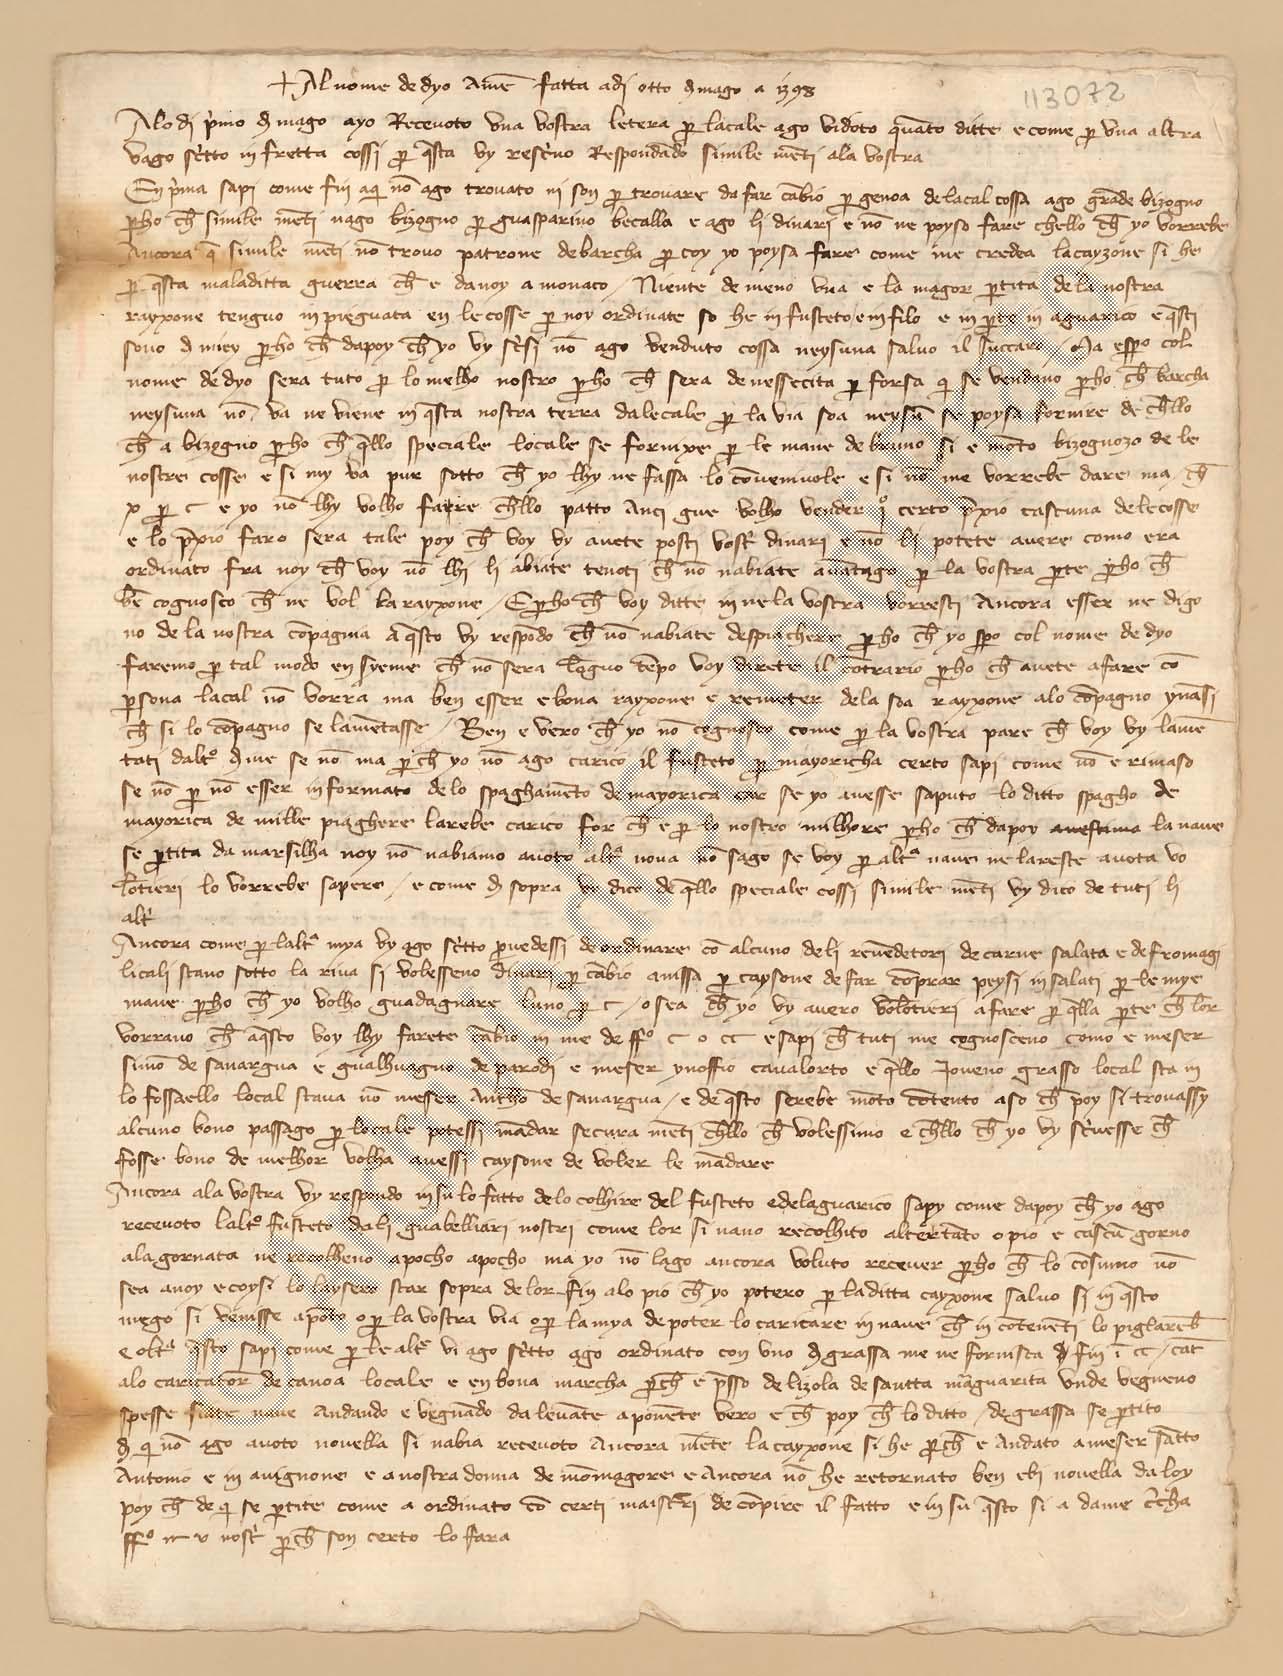 + Al nome de dyo Amē fatta adj otto d mago a 1398
113072
Alo dj p'mo d mago ayo Recevoto vna vostra letera p lacale ago vidoto quāto ditte e come p vna altra
vago sc'tto in fretta cossj p q̄sta vy resc'ivo Respondādo simile mētj ala vostra
En p'ma sapi come fin aq̄ nō ago trovato nj son p trovare da far cābio p genoa de lacal cossa ago grāde bizogno
pho ch̄ simile mētj nago bizogno p guasparino becalla e ago li dinarj e nō ne poyso fare chello ch̄ yo vorrebe
Ancora q̄ simile mētj nō trovo patrone de barcha p coy yo poysa fare come me credea la cayzone si he
p q̄sta maladitta guerra ch̄ e da noy a monaco / Niente de meno vna e la magor ptita de la nostra
rayxone tenguo in pieguata en le cosse p noy ordinate so he in fusteto e in filo e in pte in aguarico e q̄stj
sono d miey pho ch̄ dapoy ch̄ yo vy sc'isj nō ago venduto cossa neysuna salvo il succaro / Ma espo col
nome de dyo sera tuto p lo melho nostro pho ch̄ sera de nessecita p forsa q̄ se vendano pho ch̄ barcha
neysuna nō va ne viene in q̄sta nostra terra dalecale p la via soa neysū se poysa fornire de ch̄llo
ch̄ a bizogno pho ch̄ q̄llo speciale locale se fornixe p le mane de bruno si e moto bizognozo de le
nostre cosse e si my va pue sotto ch̄ yo lhy ne fassa lo cōvenivole e si nō me vorrebe dare ma / ch̄
x p c e yo nō lhy volho faire ch̄llo patto Anci gue volho vender q° certo p̄xio cascuna dele cosse
e lo p̄xio faro sera tale poy ch̄ voy vy avete postj vost' dinarj e nō lj potete avere como era
ordinato fra noy ch̄ voy nō lhi li abiate tenotj ch̄ nō nabiate avātago p la vostra pte pho ch̄
bē cognosco ch̄ ne vol la rayxone / E pho ch̄ voy ditte in ne la vostra vorrestj Ancora esser ne digo
no de la nostra cōpagnia A q̄sto vy respōdo ch̄ nō nabiate despiachere pho ch̄ yo spo col nome de dyo
faremo p tal modo en syeme ch̄ nō sera lōguo tēpo voy direte il cōtrario pho ch̄ avete a fare cō
psona lacal nō vorra ma ben esser e bona rayxone e remeter dela soa rayxone alo cōpagno ynāsi
ch̄ si lo cōpagno se lamētasse / Ben e vero ch̄ yo nō cognosco come p la vostra pare ch̄ voy vy lamē
tati dalt° d me se nō ma p ch̄ yo nō ago carico il fusteto p mayoricha certo sapi come nō e rimaso
se nō p nō esser informato de lo spaghamēto de mayorica car se yo avesse saputo lo ditto spagho de
mayorica de mille piaghere larebe carico for ch̄ e p lo nostro milhore pho ch̄ dapoy la nave
se ptita da marsilha noy nō nabiamo avoto alt'a nova nō sago se voy p alt'a nave ne lareste avota vo
lōtieri lo vorrebe sapere / e come d sopra vy dico de q̄llo speciale cossj simile mētj vy dico de tutj li
alt'
Ancora come p lalt'a mya vy ago sc'tto pvedessj de ordinare cō alcuno de li revēdetorj de carne salata e de fromagi
licali stano sotto la riva si volesseno dinarj p cābio anissa p caysone de far cōprar peysi in salati p le mye
mane pho ch̄ yo volho guadagnare luno p c / o sea ch̄ yo vy avero volōtierj a fare p q̄lla pte ch̄ lor
vorrano ch̄ aq̄sto voy lhy farete cābio in me de ff° c o cc e sapi ch̄ tutj me cognosceno como e meser
simō de savargua e gualhuagno de parodi e meser ynoffio cavalorto e q̄llo Joveno grasso local sta in
lo fossaello local stava nō meser Anthō de savargua / e de q̄sto serebe moto cōtento aso ch̄ poy si trovassy
alcuno bono passago p locale potessj mādar secura mētj ch̄llo ch̄ volessimo e ch̄llo ch̄ yo vy sc'ivesse ch̄
fosse bono de melhor volha avessj caysone de voler le mādare
Ancora ala vostra vy respondo in su lo fatto de lo colhire del fusteto e delaguarico sapy come dapoy ch̄ yo ago
recevoto lalt° fusteto dali guabelliarj nostri come lor si nano recolhito altertāto o pio e cascū gorno
ala gornata ne recolheno apocho apocho ma yo nō lago ancora voluto recever pho ch̄ lo cōsumo nō
sea a noy e coysi lo laysero star sopra de lor fin alo pio ch̄ yo potero p la ditta cayxone salvo si in q̄sto
mego si venisse apōto o p la vostra via o p la mya de poter lo caricare in nave ch̄ in cōtenētj lo piglareb̄
e olt'a q̄sto sapi come p le alt'e vi ago sc'tto ago ordinato con vno d grassa me ne fornisca d fin ī cc / cāt
alo caricator de canoa locale e en bona marcha pch̄ e p̄sso de lizola de santta marguarita vnde vegneno
spesse fiate nave Andando e vegnādo da levāte a ponēte vero e ch̄ poy ch̄ lo ditto / de grassa se ptito
d q̄ nō ago avoto novella si nabia recevoto Ancora mēte la cayxone si he pch̄ e Andato a meser sātto
Antonio e in avignone e a nostra donna de mōmagore e Ancora nō he retornato ben ebi novella da loy
poy ch̄ de q̄ se ptite come a ordinato cō certj maistrj de cōpire il fatto e in su q̄sto si a dame c'cha
ff° v nost' pch̄ son certo lo fara